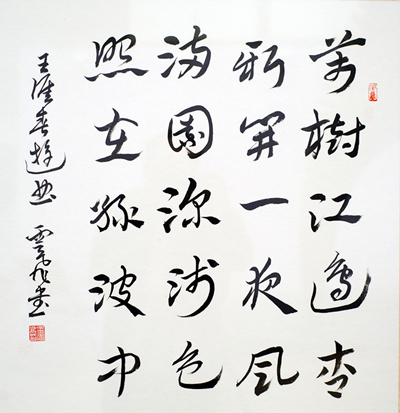 萬樹江邊杏
新開一夜風
滿園深淺色
照在綠波中
王涯春遊曲 雲